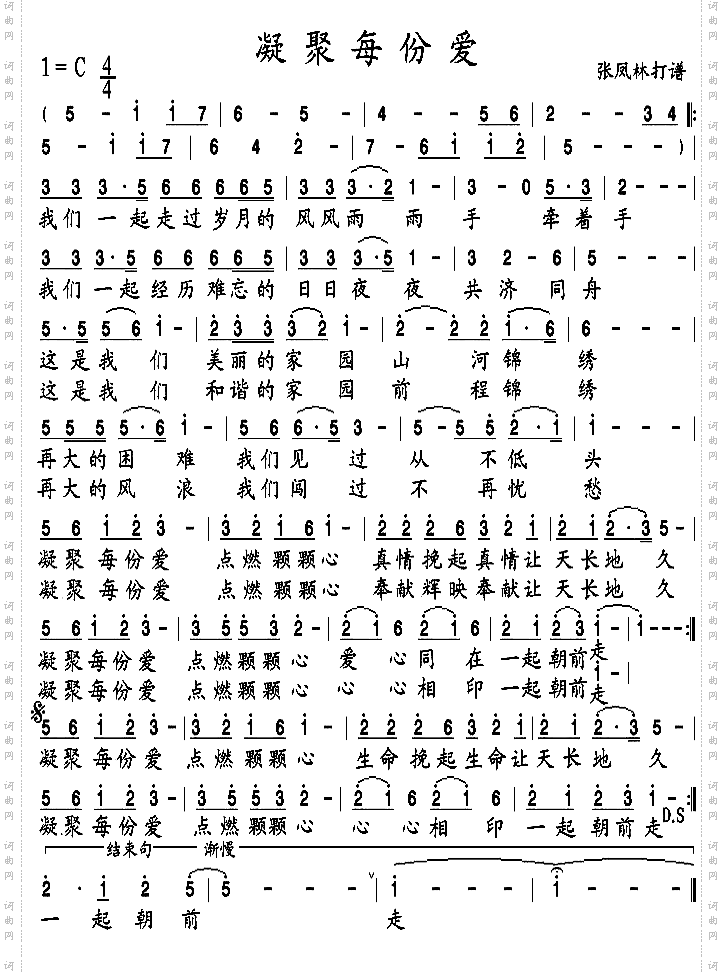 凝聚每份爱
1=C 4/4
张凤林打谱
( 5 - i i 7 | 6 - 5 - | 4 - - 5 6 | 2 - - 3 4 ‖:
5 - i i 7 | 6 4 2 - | 7 - 6 i i 2 | 5 - - - ) |
3 3 3 · 5 6 6 6 6 6 5 | 3 3 3 · 2 1 - | 3 - 0 5 · 3 | 2 - - - |
我们 一起走过岁月的 风风雨 雨 手 牵着手
3 3 3 · 5 6 6 6 6 6 5 | 3 3 3 · 5 1 - | 3 2 - 6 | 5 - - - |
我们一起经历难忘的 日日夜 夜 共济同舟
5 · 5 5 6 i - | 2 3 3 3 2 i - | 2 - 2 2 i · 6 | 6 - - - |
这是我 们 美丽的家 园山 河锦 绣
这是我 们 和谐的家 园前 程锦 绣
5 5 5 5 · 6 i - | 5 6 6 6 · 5 3 - | 5 - 5 5 2 · i | i - - - |
再大的困 难 我们见 过从 不低 头
再大的风 浪 我们闯 过不 再忧 愁
5 6 i 2 3 - | 3 2 i 6 i - | 2 2 2 6 3 2 i | 2 i 2 · 3 5 - |
凝聚每份爱 点燃颗颗心 真情挽起真情让 天长地 久
凝聚每份爱 点燃颗颗心 奉献辉映奉献让 天长地 久
5 6 i 2 3 - | 3 5 5 3 2 - | 2 i 6 2 i 6 | 2 i 2 3 i - | i - - - :‖
凝聚每份爱 点燃颗颗心 爱 心同 在 一起朝前走
i -
凝聚每份爱 点燃颗颗心 心 心相 印 一起朝前走
5 6 i 2 3 - | 3 2 i 6 i - | 2 2 2 6 3 2 i | 2 i 2 · 3 5 - |
凝聚每份爱 点燃颗颗心 生命挽起生命让天长地 久
5 6 i 2 3 - | 3 5 5 3 2 - | 2 i 6 2 i 6 | 2 i 2 3 i - :‖
D.S
凝聚每份爱 点燃颗颗心 心 心相 印 一起朝前走
结束句 渐慢
2 · i 2 5 | 5 - - - | i - - - | i - - - ‖
一 起 朝 前 走